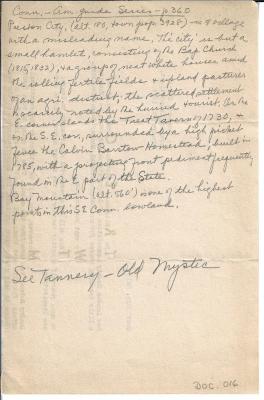 Conn. - Am. guide Series - p 360
Preston City, (alt. 180, town pop. 3928) - is a village
with a misleading name. The city is but a
small hamlet, consisting of the Bap Church
(1815, 1832), & a group of neat white houses amid
the rolling fertile fields & upland pastures
of an agri. district; the scattered settlement
is scarcely noted by the hurried tourist. On the
E. corner stands the Treat Tavern, 1730, &
on the S.E. cor., surrounded by a high picket
fence the Calvin Barstow Homestead, built in
1785, with a projecting front pediment frequently
found in the E. part of the State.
Bay Mountain (alt. 560') is one of the highest
points in this S.E. Conn. lowland.
See Tannery - Old Mystic
DOC. 016